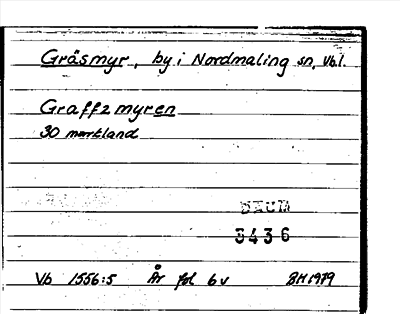 Gräsmyr, by i Nordmaling sn, Vb.l.
Graffzmyren
30 markland
DAUM
3436
Vb 1556:5 År fol 6v BH1979